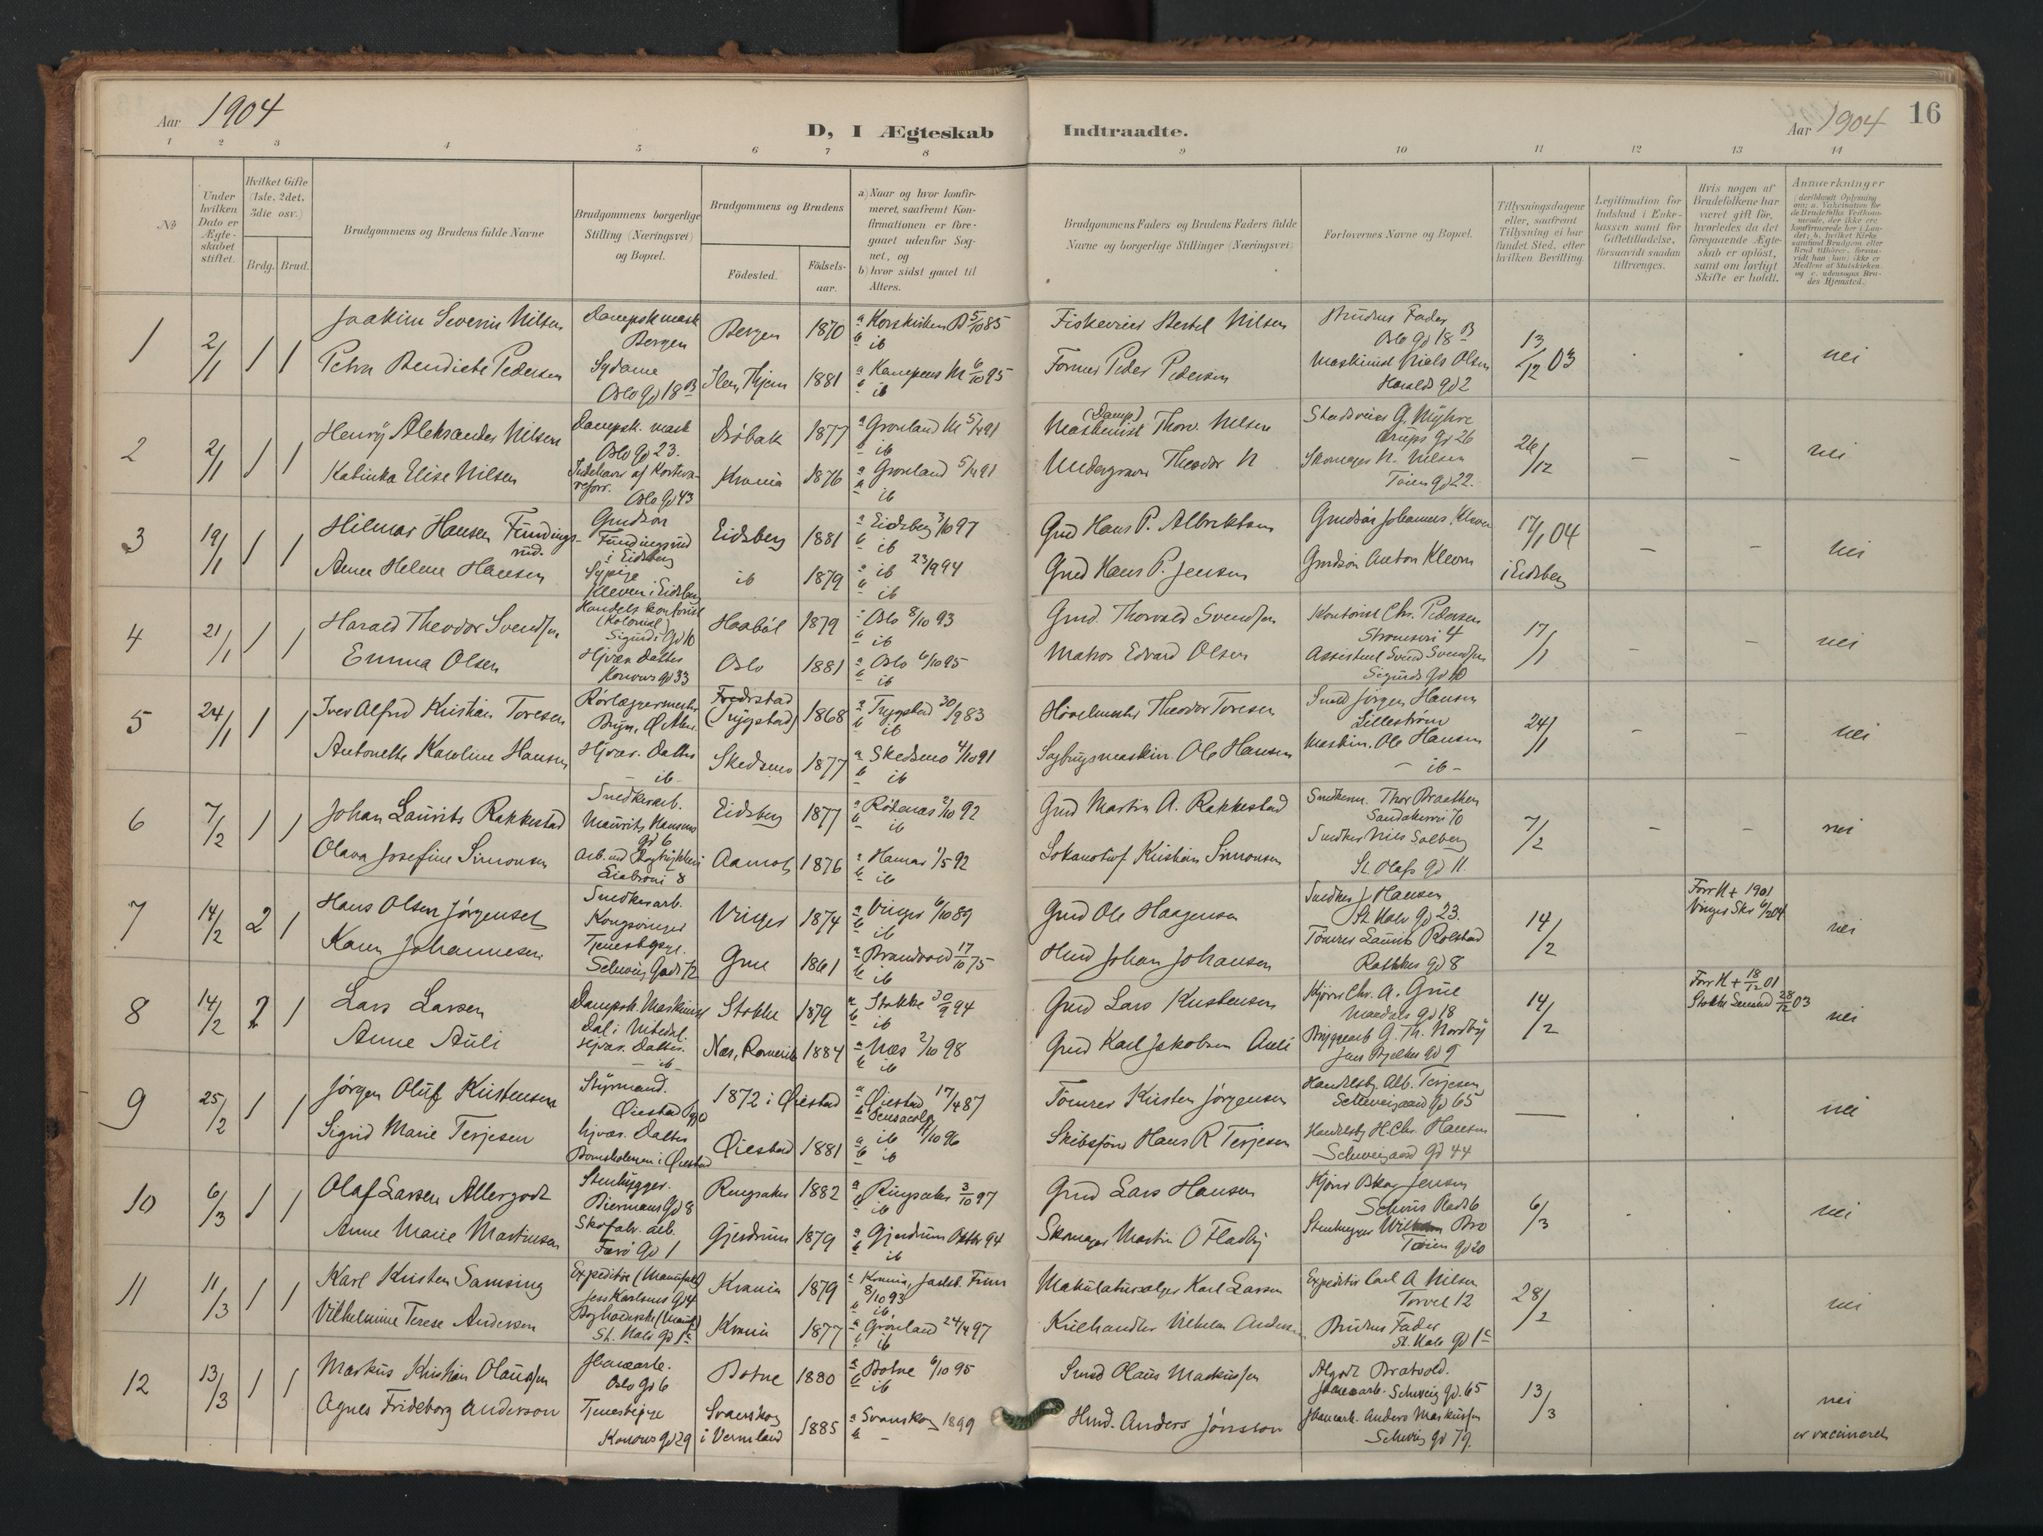 Aar 1904
D, I Ægteskab Indtraadte.
Aar 1904 16
1 2 3 4 5 6 7 8 9 10 11 12 13 14
No
Under hvilken Dato er Ægteskabet stiftet.
Hvilket Gifte (1ste, 2det, 3die osv.)
Brdg. Brud.
Brudgommens og Brudens fulde Navne
Brudgommens borgerlige Stilling (Næringsvei) og Bopæl.
Brudgommens og Brudens
Fødested. Fødselsaar.
a) Naar og hvor konfirmeret, saafremt Konfirmationen er foregaaet udenfor Sognet, og
b) hvor sidst gaaet til Alters.
Brudgommens Faders og Brudens Faders fulde Navne og borgerlige Stillinger (Næringsvei)
Forlovernes Navne og Bopæl.
Tillysningsdagene eller, saafremt Tillysning ei har fundet Sted, efter hvilken Bevilling.
Legitimation for Indskud i Enkekassen samt for Giftetilladelse, forsaavidt saadan tiltrænges.
Hvis nogen af Brudefolkene har været gift før, hvorledes da det foregaaende Ægteskab er opløst, samt om lovligt Skifte er holdt.
Anmærkninger
1 2/1 1 1 Joakim Severin Nilsen Dampsk mask Bergen Bergen 1870 a Korskirken B 5/10 85 b ib Fiskeeier Bertel Nilsen Brudens Fader Oslo gd 18 B 13/12 03 nei
Petra Bendicte Pedersen Sydame Oslo Gd 18 B 1881 a Kampens M 6/10 95 b ib Former Peder Pedersen Maskinist Niels Olsen Haralds gd 2
2 2/1 1 1 Henry Aleksander Nilsen Dampsk. mask Oslo Gd 23. Drøbak 1877 a Grønland M 5/4 91 b ib Maskinist (Damp) Thorv. Nilsen G. Myhre Urups gd 26 26/12 - - nei
Katinka Elise Nilsen Oslo Gd 43 Krania 1876 a Grønland 5/4 91 ib Theodor N Skomager N. Nilsen Tøien gd 22.
3 19/1 1 1 Hilmar Hansen Fundingsrud. Grudsøn Fundingsrud i Eidsberg Eidsberg 1881 a Eidsberg 3/10 97 b ib Grud Hans P. Albriktsen Grudsøn Johannes Kleven 17/1 04 i Eidsberg - - nei
Anne Helene Hansen Sypige Kleven i Eidsberg ib 1879 a ib 23/9 94 b ib Grud Hans P. Jensen Grudsøn Anton Kleven
4 21/1 1 1 Harald Theodor Svendsen Handels kontorist (Kolonial) Sigurds Gd 10 Hobøl 1879 a Oslo 8/10 93 b ib Grud. Thorvald Svendsen Kontorist Chr. Pedersen Strømsvei 4 17/1 - - nei
Emma Olsen Hjvær. Datter Konows gd 33 Oslo 1881 a Oslo 6/10 95 b ib Matros Edvard Olsen Assistent Svend Svendsen Sigurds gd 10
5 24/1 1 1 Iver Alfred Kristian Toresen Rørlæggermester Bryn, Ø. Aker Fredrstad (Trygstad) 1868 a Trygstad 30/9 83 b ib Høvelmester Theodor Toresen Smed Jørgen Hansen Lillestrøm 24/1 - - nei
Antonette Karoline Hansen Hjvær. Datter - ib - Skedsmo 1877 a Skedsmo 4/10 91 b ib Sagbrugsmaskin. Ole Hansen Maskin. Ole Hansen - ib -
6 7/2 1 1 Johan Laurits Rakkestad Snedkerarb. Maurits Hansens gd 6 Eidsberg 1877 a Rødenæs 2/10 92 b ib Grud Martin A. Rakkestad Thor Braathen Sandakervei 70 7/2 - - nei
Olava Josefine Simonsen Aamot 1876 a Hamar 1/5 92 b ib Kristian Simonsen Snedker Nils Solberg St. Olafs gd 11.
7 14/2 2 1 Hans Olsen Jørgenset Snedkerarb. Kongsvinger Vinger 1874 a Vinger 6/10 89 b ib Grud Ole Haagensen Snedker J. Hansen St. Hals Gd 23. 14/2 Forr H + 1901 Vinger Skr 6/2 04 nei
Karen Johannesen Schweig Gads 72 Grue 1861 a Brandvold 17/10 75 b ib Hmd Johan Johansen Tømrer Laurits Rolstad Rathkes gd 8
8 14/2 2 1 Lars Larsen Dampsk. Maskinist Dal i Uvedal. Stokke 1879 a Stokke 30/9 94 b ib Grud Lars Kristensen Kjører Chr. A. Grue Mandals gd 18 14/2 Forr H + 18/12 01 Stokke 28/12 03 nei
Anne Auli Hjvær. Datter. - ib - Næs, Romerik 1884 a Næs 2/10 98 b ib Grud Karl Jakobsen Auli Bryggearb G. Th. Nordby Jens Bjelkes gd 9
9 25/2 1 1 Jørgen Oluf Kristensen Styrmand. Øiestad 1872 i Øiestad a Øiestad 17/4 87 Tømrer Kristen Jørgensen Handelsb. Alb. Terjesen, Schweigaard Gd 65 — nei
Sigrid Marie Terjesen hjvær. Datter i Øiestad Øiestad 1881 a ib /10 96 b ib Skibsfører Hans R Terjesen Handelsb. H. Chr. Hansen Schweigaard Gd 44
10 6/3 1 1 Olaf Larsen Allergodt Stenhugger. Biermans Gd 8 Ringsaker 1882 a Ringsaker 3/10 97 b ib Grud Lars Hansen Kjører Jensen 6/3 nei
Anne Marie Martinsen Skofabr. arb. Færø Gd 1 Gjerdrum 1879 a Gjerdrum Oktbr 94 b ib Skomager Martin O Fladby Stenhugger Bro Tøien gd 20
11 11/3 1 1 Karl Kristen Samsing Expeditør (Manufakt) Jess Karlsens Gd 4 Krania 1879 a Krania, 8/10 93 b ib. Makulatursælger Karl Larsen Expeditør Carl A. Nilsen Torvet 12 28/2 nei
Vilhelmine Terese Andersen St. Hals Gd 1 c Krania 1877 a Grønland 24/4 97 b ib Kulhandler Vilhelm Andersen Brudens Fader St. Hals gd 1 c
12 13/3 1 1 Markus Kristian Olaussen Jbanearb. Oslo Gd 6 Botne 1880 a Botne 6/10 95 b ib Smed Olaus Markussen Algodt Bratvold. Jbanearb. Schweig Gd. 65 13/3 nei
Agnes Frideborg Anderson Tjenestepige Konows Gd 29 Svanskog i Vermland 1885 a Svanskog 1899 b - Hmd. Anders Jónsson Jbanearb. Anders Markussen Schweig gd 79. er vaccineret